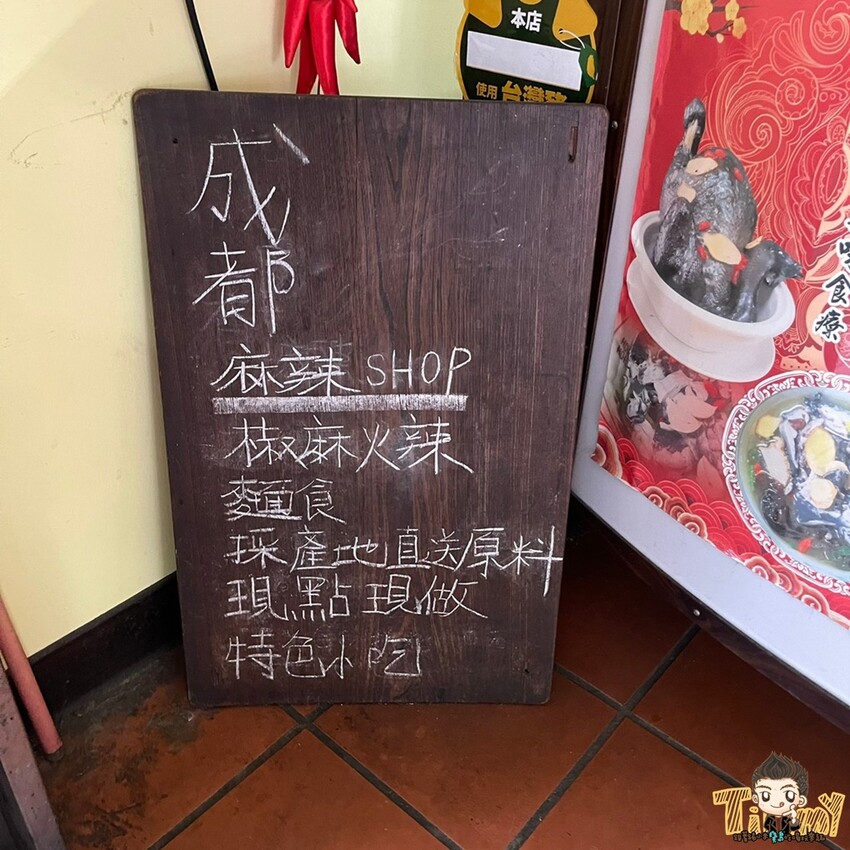 本店
使用
成
都
麻辣 SHOP
椒麻火辣
麵食
採產地直送原料
現點現做
特色小吃
食療
TiMMY